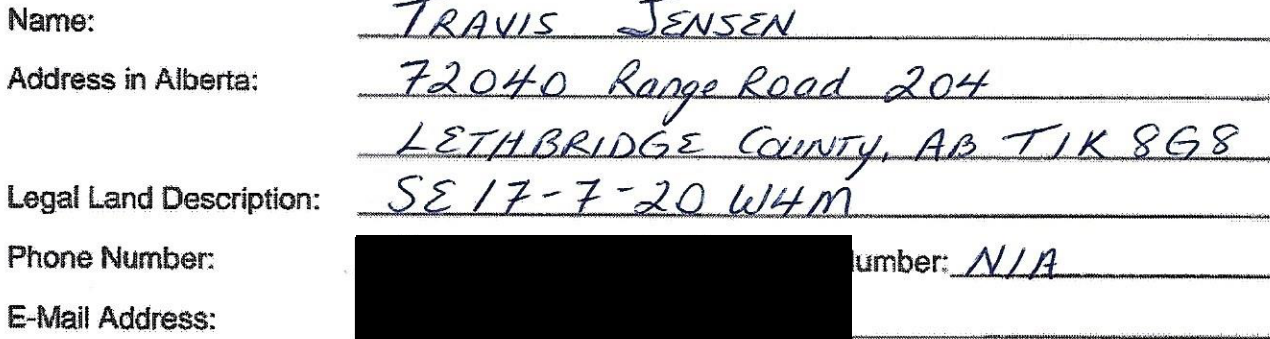 Name: TRAVIS JENSEN
Address in Alberta: 72040 Range Road 204
LETHBRIDGE COUNTY, AB T1K 8G8
Legal Land Description: SE 17-7-20 W4M
Phone Number: umber: N/A
E-Mail Address: